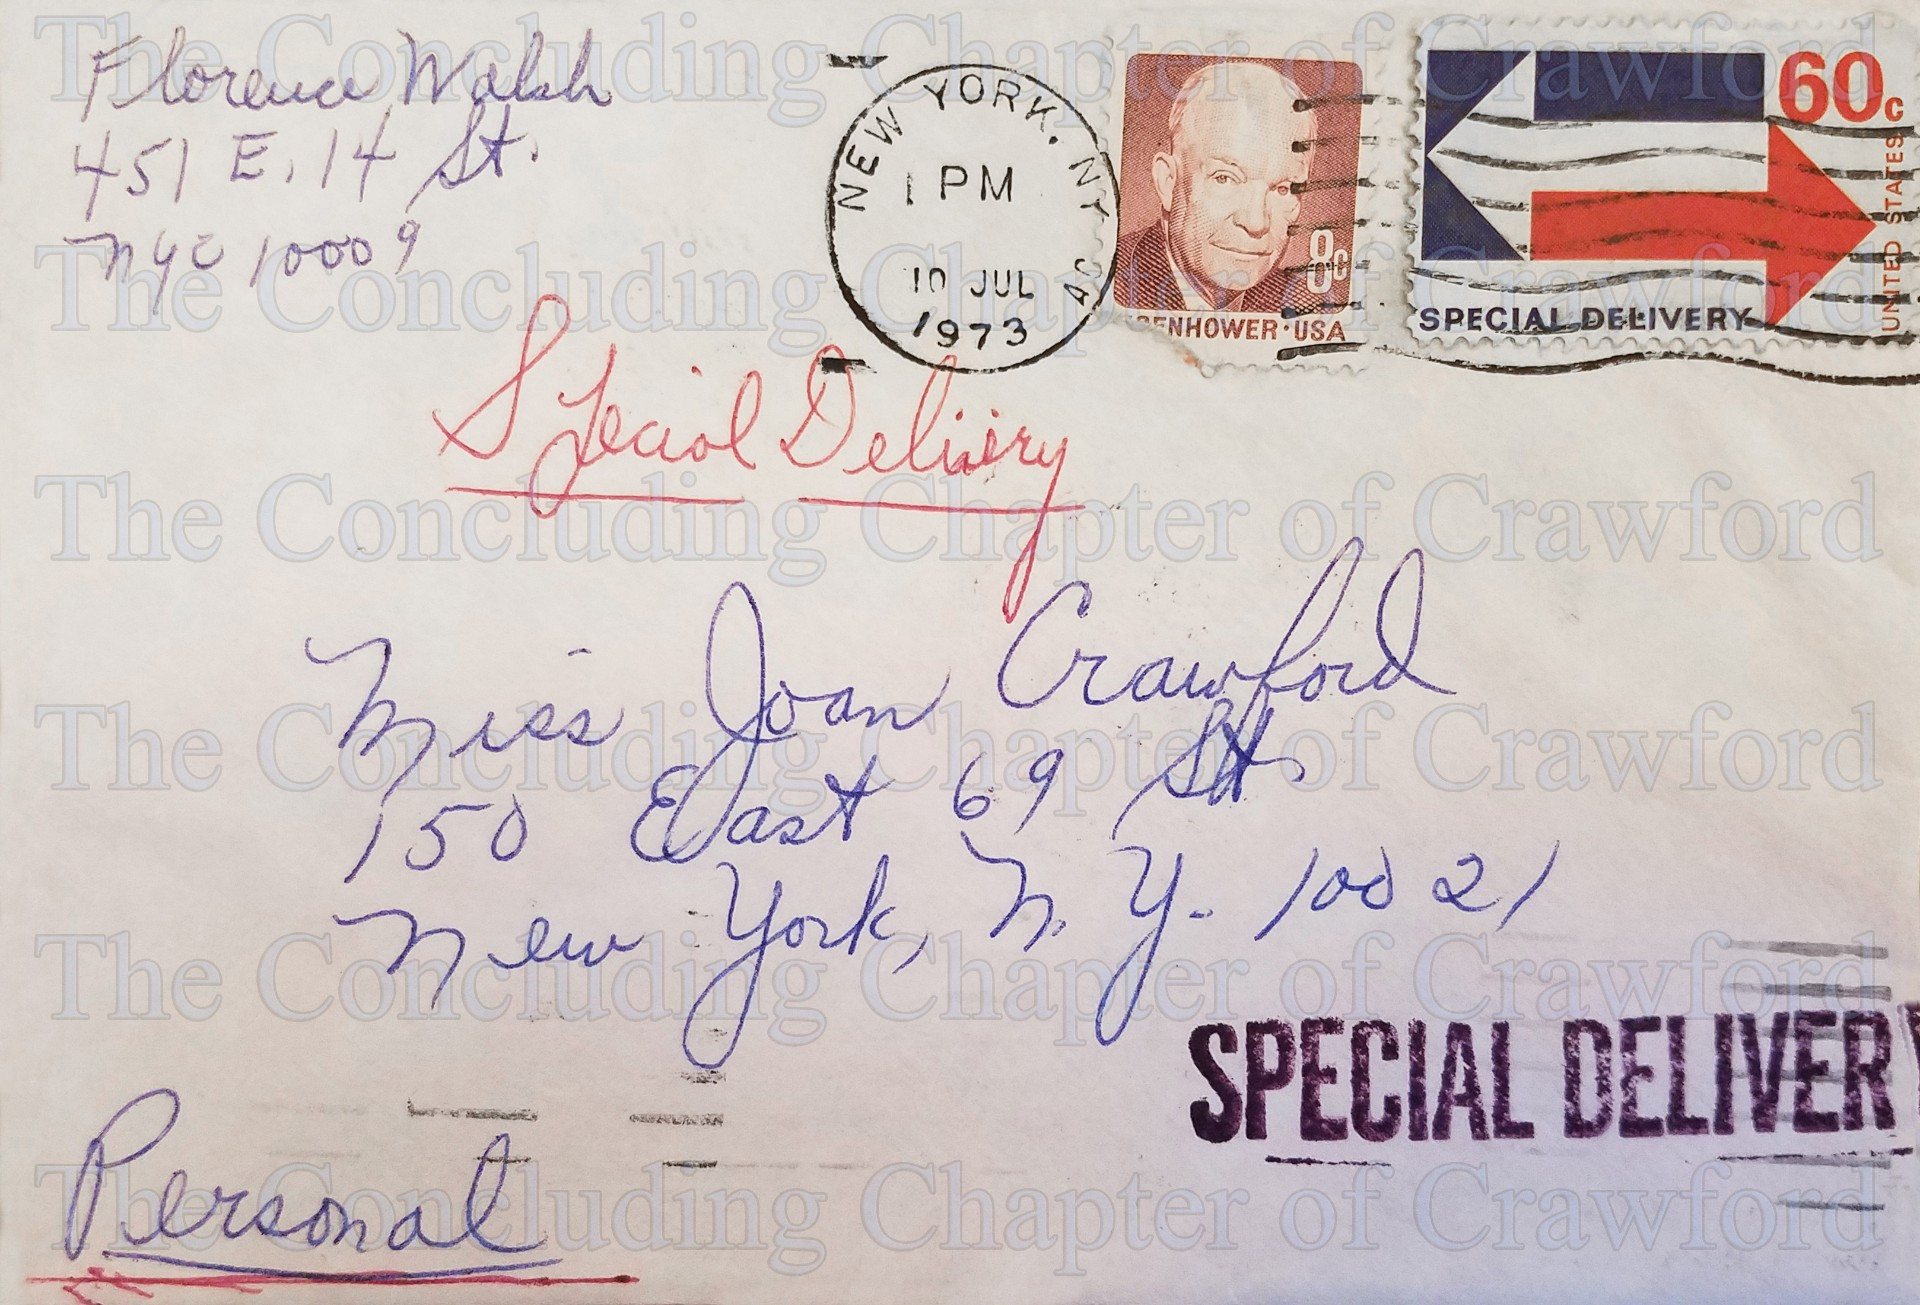 The Concluding Chapter of Crawford
Florence Walsh
451 E. 14 St.
NYC 10009
NEW YORK, NY
1 PM
10 JUL
1973
40
8c
EISENHOWER·USA
60c
UNITED STATES
SPECIAL DELIVERY
The Concluding Chapter of Crawford
Special Delivery
The Concluding Chapter of Crawford
Miss Joan Crawford
The Concluding Chapter of Crawford
150 East 69 St.
New York, N.Y. 10021
The Concluding Chapter of Crawford
SPECIAL DELIVERY
The Concluding Chapter of Crawford
Personal